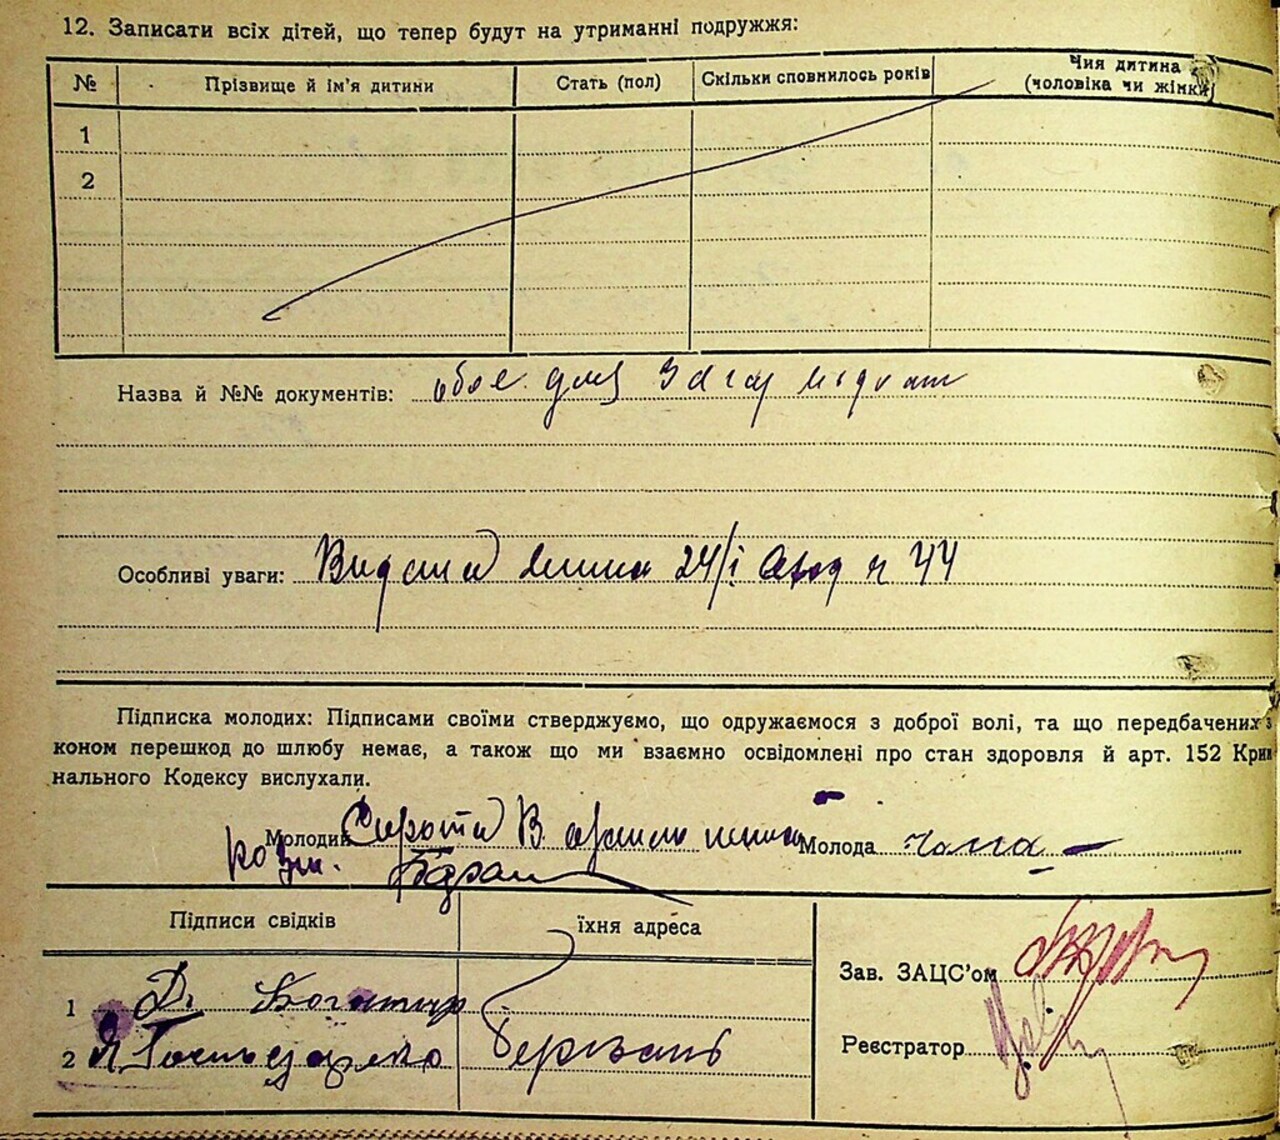 12. Записати всіх дітей, що тепер будут на утриманні подружжя:
№ Прізвище й ім'я дитини Стать (пол) Скільки сповнилось років Чия дитина
(чоловіка чи жінки)
1
2
Назва й №№ документів:
Особливі уваги: 24/I 44
Підписка молодих: Підписами своїми стверджуємо, що одружаємося з доброї волі, та що передбачених з
коном перешкод до шлюбу немає, а також що ми взаємно освідомлені про стан здоровля й арт. 152 Крим
нального Кодексу вислухали.
Молодий Сирота В Молода
Підписи свідків їхня адреса
Зав. ЗАЦС'ом
1 Д. Богатир
2 Я. Господарько Березань
Реєстратор